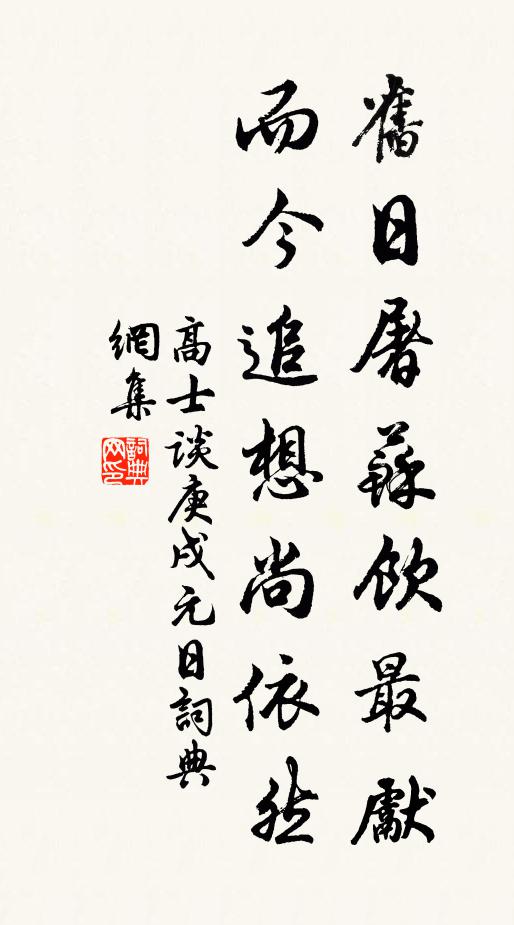 舊日屠蘇飲最獻
而今追想尚依然
高士談庚戌元日詞典
網集
詞典
网印